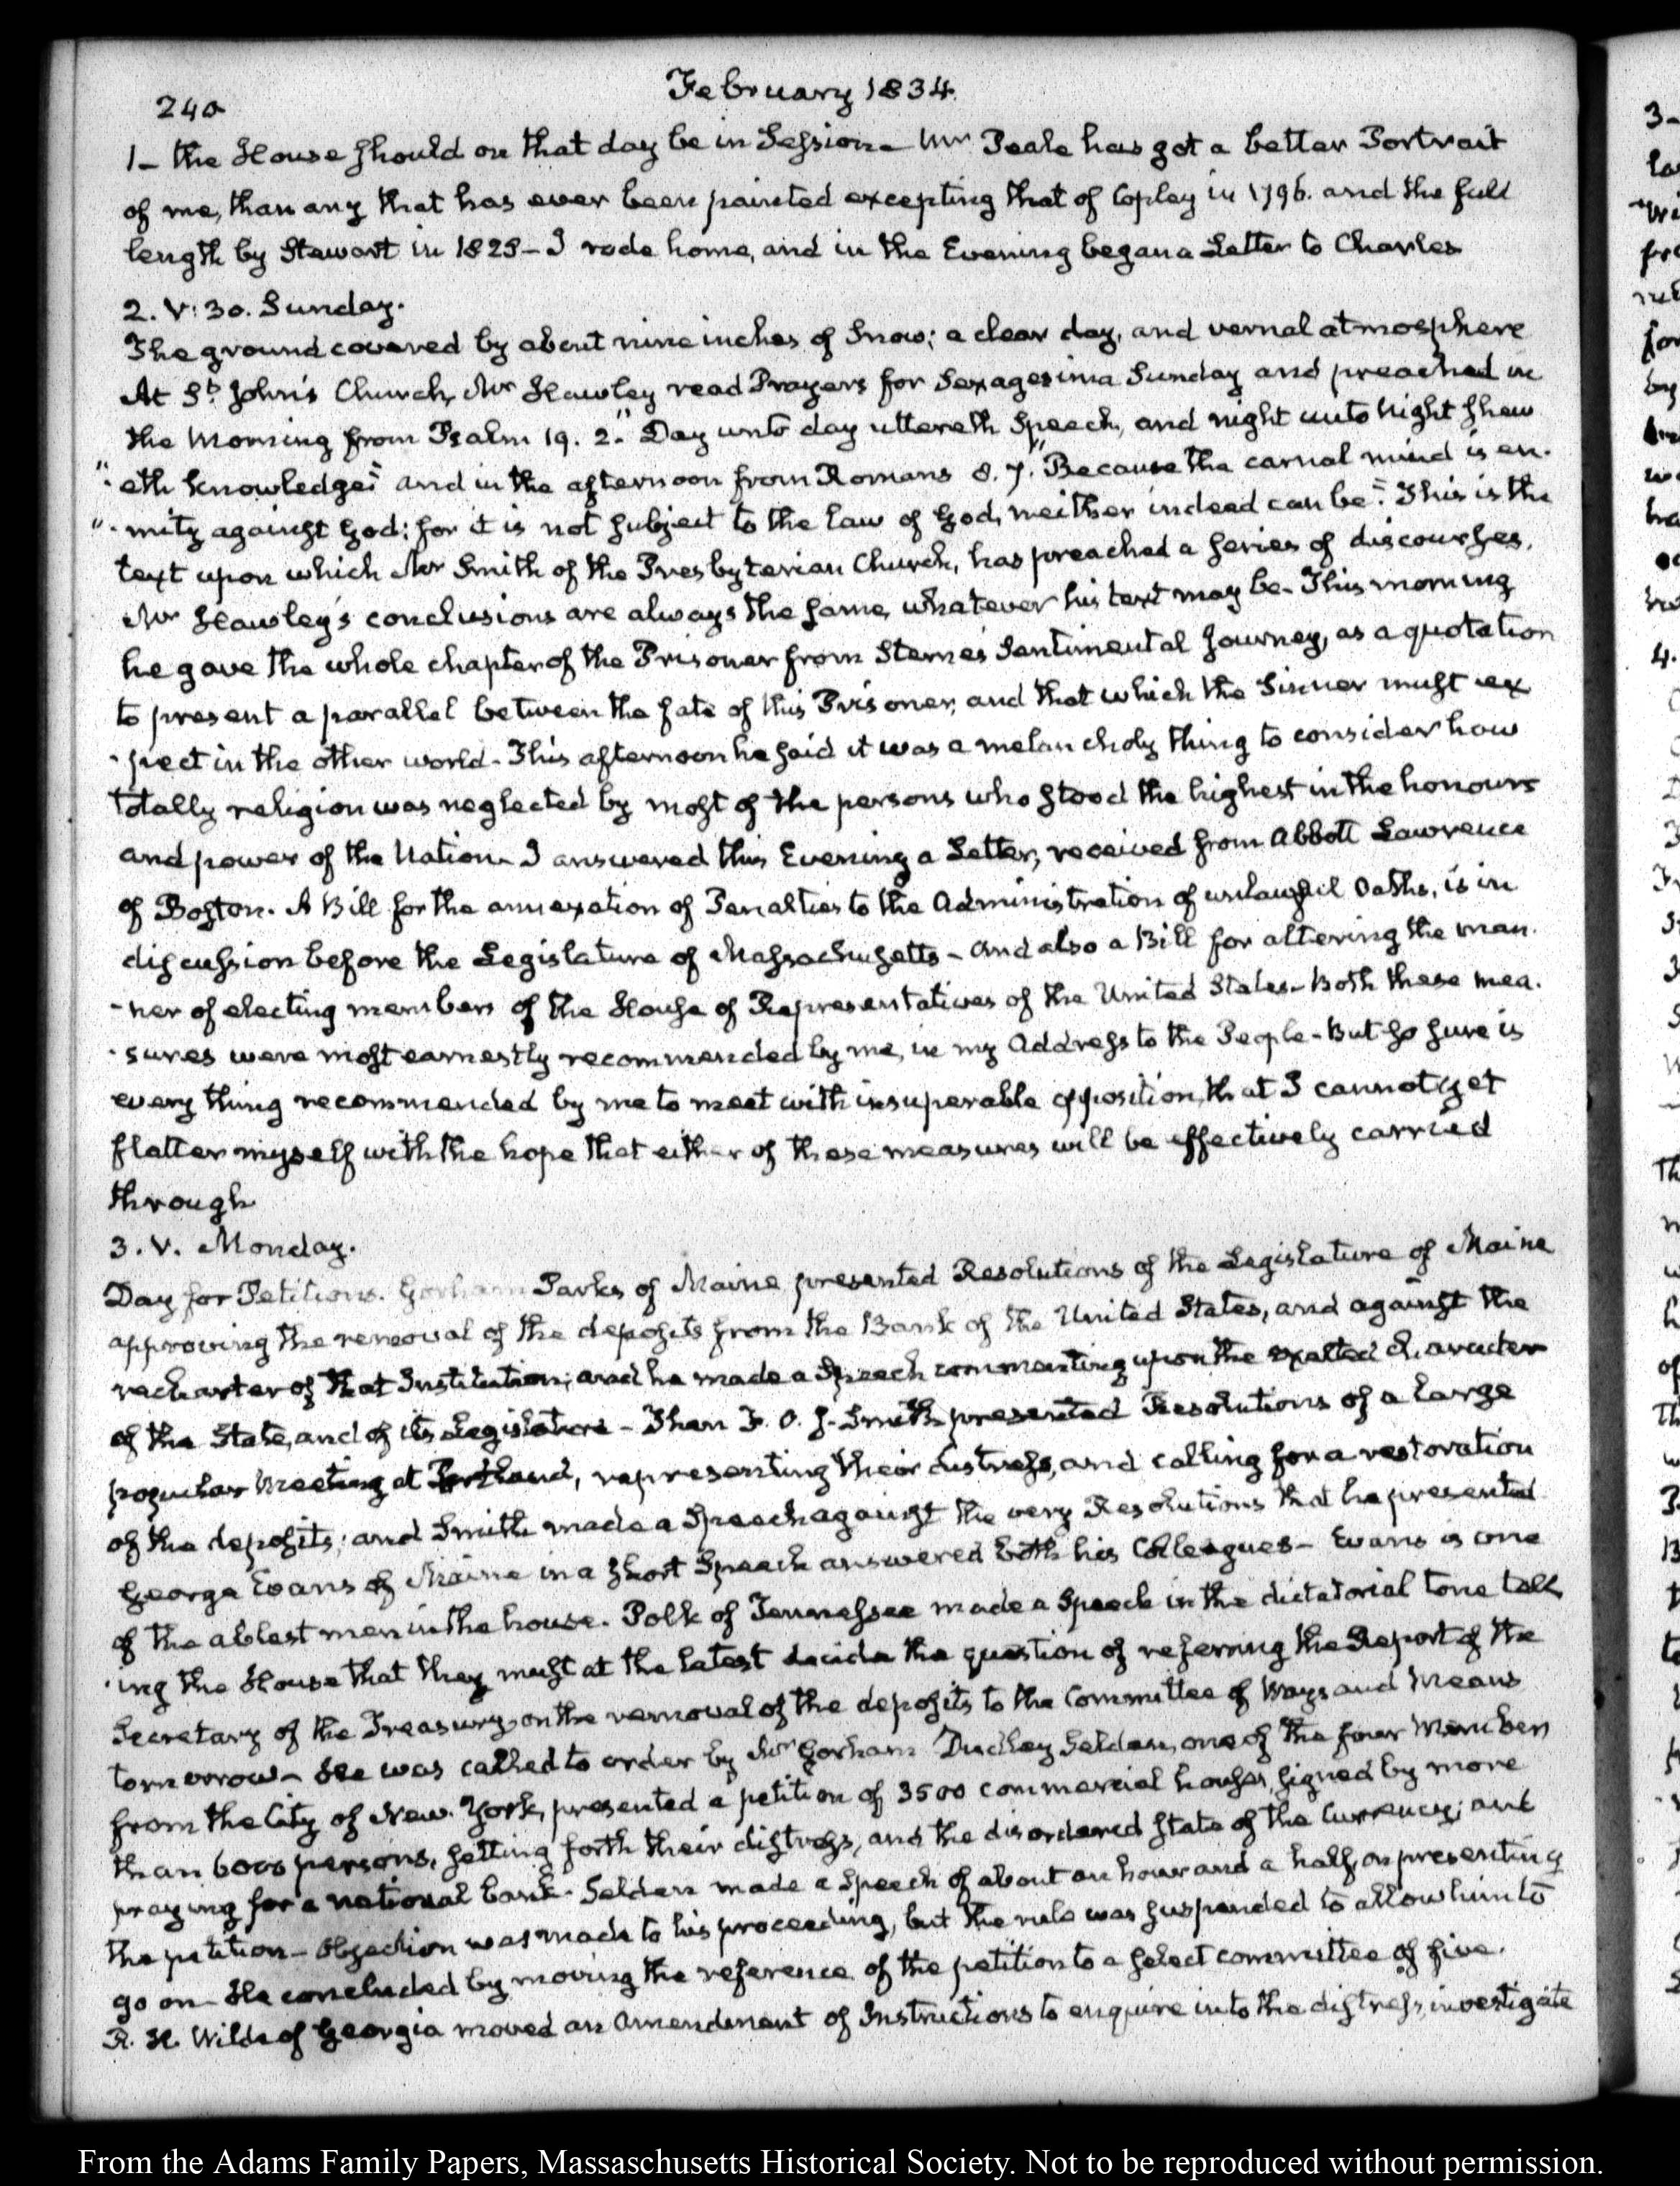 240
February 1834.
1– the House should on that day be in Session– Mr Peale has got a better Portrait
of me, than any that has ever been painted excepting that of Copley in 1796. and the full
length by Stewart in 1825– I rode home, and in the Evening began a Letter to Charles
2. V:30. Sunday.
The ground covered by about nine inches of Snow; a clear day, and vernal atmosphere
At St. John's Church, Mr Hawley read Prayers for Sexagesima Sunday and preached in
the Morning from Psalm 19. 2. "Day unto day uttereth Speech, and night unto Night shew
"eth knowledge" and in the afternoon from Romans 8. 7. "Because the carnal mind is en-
"mity against God: for it is not subject to the law of God, neither indeed can be". This is the
text upon which Mr Smith of the Presbyterian Church, has preached a series of discourses.
Mr Hawley's conclusions are always the same, whatever his text may be– This morning
he gave the whole chapter of the Prisoner from Sterne's Sentimental Journey, as a quotation
to present a parallel between the fate of this Prisoner, and that which the Sinner must ex
-pect in the other world– This afternoon he said it was a melancholy thing to consider how
totally religion was neglected by most of the persons who stood the highest in the honours
and power of the Nation– I answered this Evening a Letter, received from Abbott Lawrence
of Boston. A Bill for the annexation of Penalties to the Administration of unlawful Oaths, is in
discussion before the Legislature of Massachusetts– and also a Bill for altering the man-
-ner of electing members of the House of Representatives of the United States– Both these mea-
-sures were most earnestly recommended by me, in my Address to the People– But so sure is
every thing recommended by me to meet with insuperable opposition, that I cannot yet
flatter myself with the hope that either of these measures will be effectively carried
through
3. V. Monday.
Day for Petitions. Gorham Parks of Maine presented Resolutions of the Legislature of Maine
approving the removal of the deposits from the Bank of the United States, and against the
recharter of that Institution; and he made a Speech commenting upon the exalted character
of the State, and of its Legislature– Then F. O. J. Smith presented Resolutions of a large
popular Meeting at Portland, representing their distress, and calling for a restoration
of the deposits; and Smith made a Speech against the very Resolutions that he presented
George Evans of Maine in a short Speech answered both his Colleagues– Evans is one
of the ablest men in the house. Polk of Tennessee made a Speech in the dictatorial tone tell
-ing the House that they must at the latest decide the question of referring the Report of the
Secretary of the Treasury on the removal of the deposits to the Committee of Ways and Means
tomorrow– He was called to order by Mr Gorham Dudley Selden, one of the four Members
from the City of New-York, presented a petition of 3500 commercial houses, signed by more
than 6000 persons, setting forth their distress, and the disordered state of the Currency; and
praying for a national bank– Selden made a Speech of about an hour and a half, on presenting
the petition– Objection was made to his proceeding, but the rule was suspended to allow him to
go on– He concluded by moving the reference of the petition to a select committee of five.
R. H. Wilde of Georgia moved an Amendment of Instructions to enquire into the distress, investigate
From the Adams Family Papers, Massachusetts Historical Society. Not to be reproduced without permission.